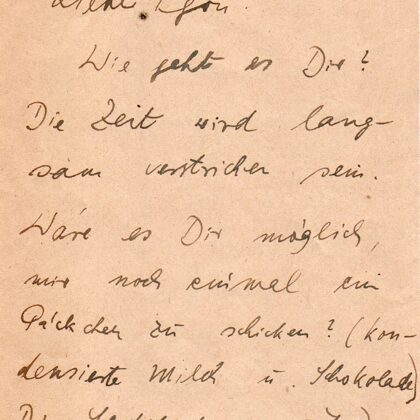 Wie geht es Dir?
Die Zeit wird lang-
sam verstrichen sein.
Wäre es Dir möglich,
mir noch einmal ein
Päckchen zu schicken? (kon-
densierte Milch u. Schokolade)